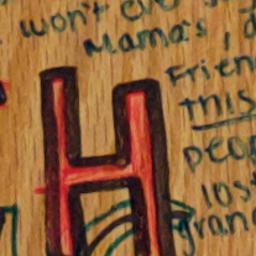 won't
Mama's,
Frien
this
peop
los
gran
H